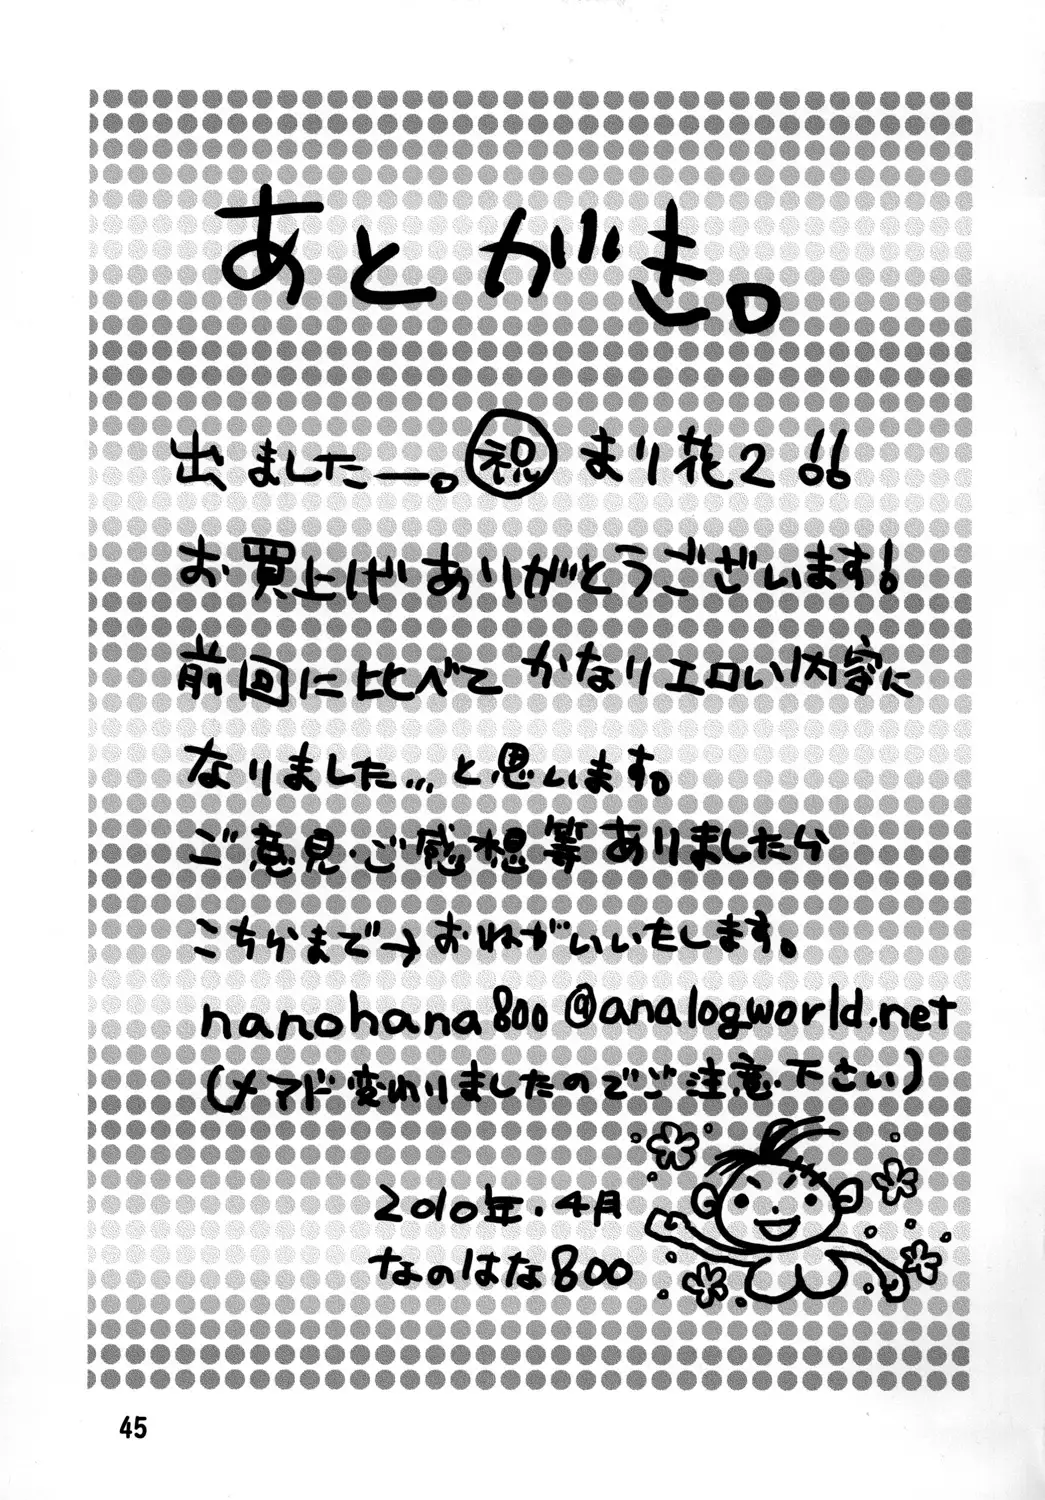 あとがき。
出ましたー。祝 まり花2!!
お買上げありがとうございます!
前回に比べて かなりエロい内容に
なりました...と思います。
ご意見・ご感想等ありましたら
こちらまで→おねがいいたします。
nanohana800@analogworld.net
(メアド変わりましたのでご注意下さい)
2010年・4月
なのはな800
45